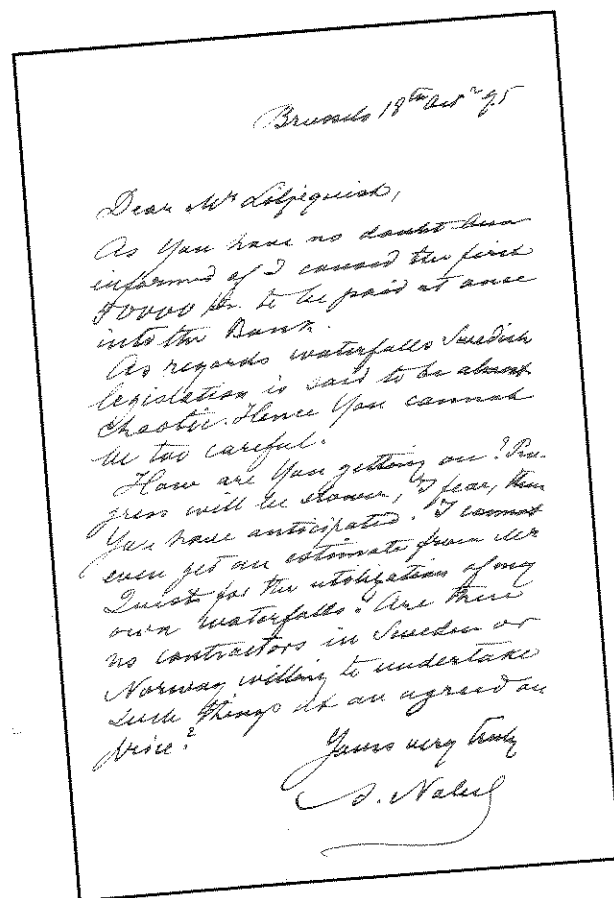 Brussels 18th Oct 95
Dear Mr Liljequist,
As You have no doubt been
informed of I caused the first
Kr. to be paid at once
into the Bank.
As regards waterfalls Swedish
legislation is said to be almost
chaotic. Hence You cannot
be too careful.
How are You getting on? Pro-
gress will be slower, I fear, than
You have anticipated. I cannot
even get an estimate from Mr
Quist for the utilization of my
own waterfalls. Are there
no contractors in Sweden or
Norway willing to undertake
such things at an agreed on
price?
Yours very truly
A. Nobel